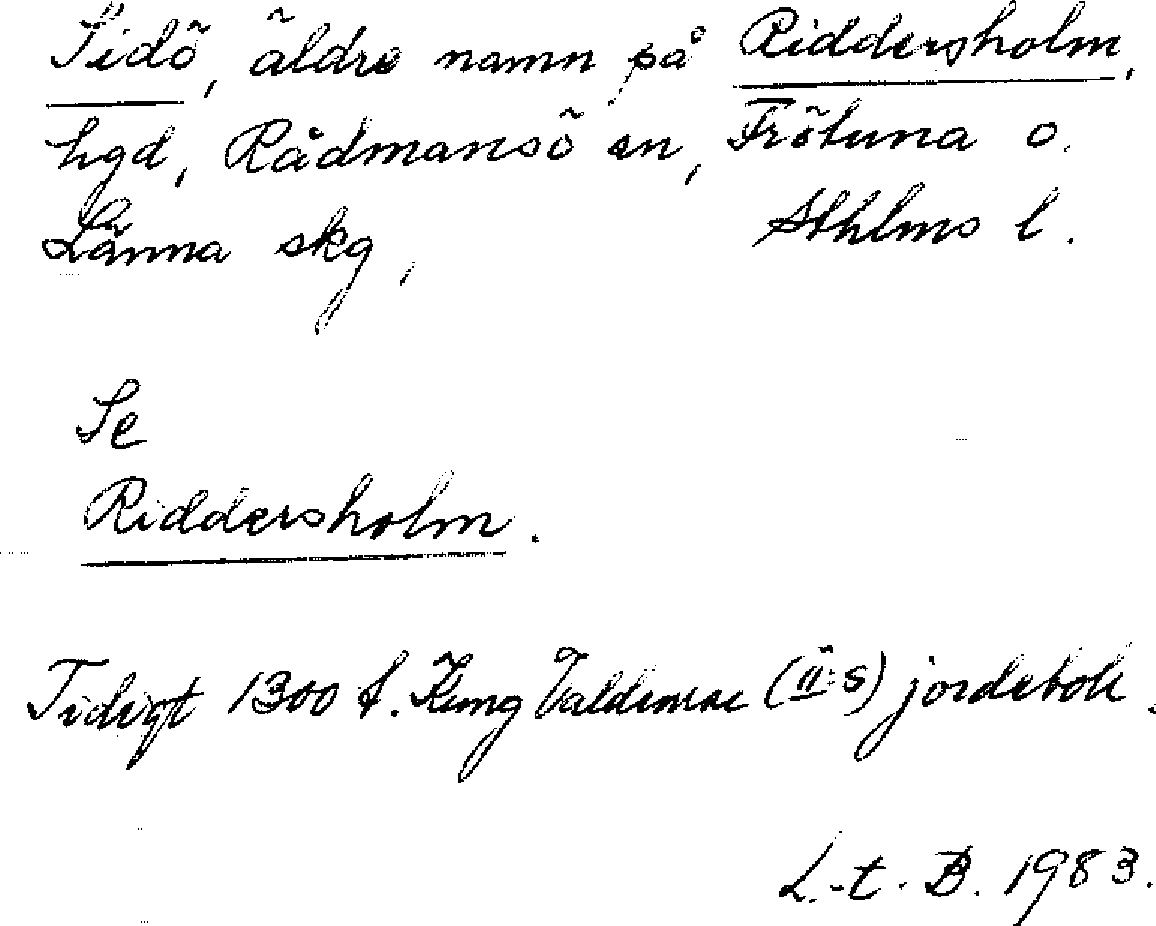 Sidö, äldre namn på Riddersholm,
hgd, Rådmansö sn, Frötuna o.
Länna skg, Sthlms l.
Se
Riddersholm.
Tidigt 1300 t. Kung Valdemar (II:s) jordebok.
L.-t. B. 1983.